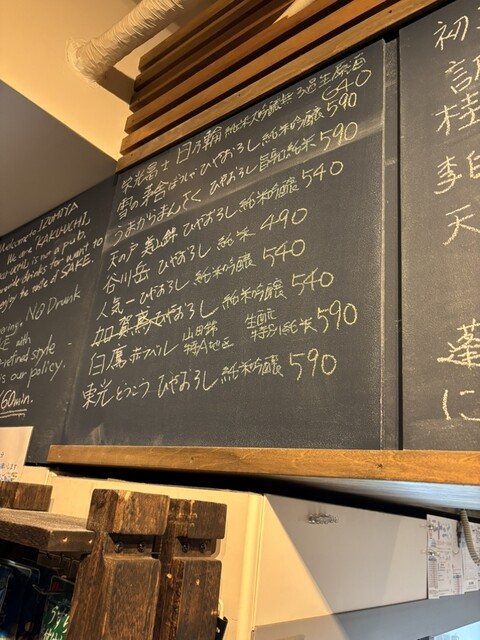 Welcome to IZUMIYA
We are KAKUUCHI
is not a pub.
drinks for want to
enjoy the taste of SAKE.
NO Drunk
with
-refined style
is our policy.
60min.
栄光冨士 日乃輪 純米大吟醸 無ろ過生原酒 640
雪の茅舎 ひやおろし 純米吟醸 590
うまからまんさく ひやおろし 純米 590
天の戸 美稲 ひやおろし 純米吟醸 540
谷川岳 ひやおろし 純米 490
人気一 ひやおろし 純米吟醸 540
加賀鳶 ひやおろし 純米吟醸 540
白鷹 赤ラベル 山田錦 特A地区 生酛 特別純米 590
東光 どっこう ひやおろし 純米吟醸 590
初
桂
李白
天
蓬
に